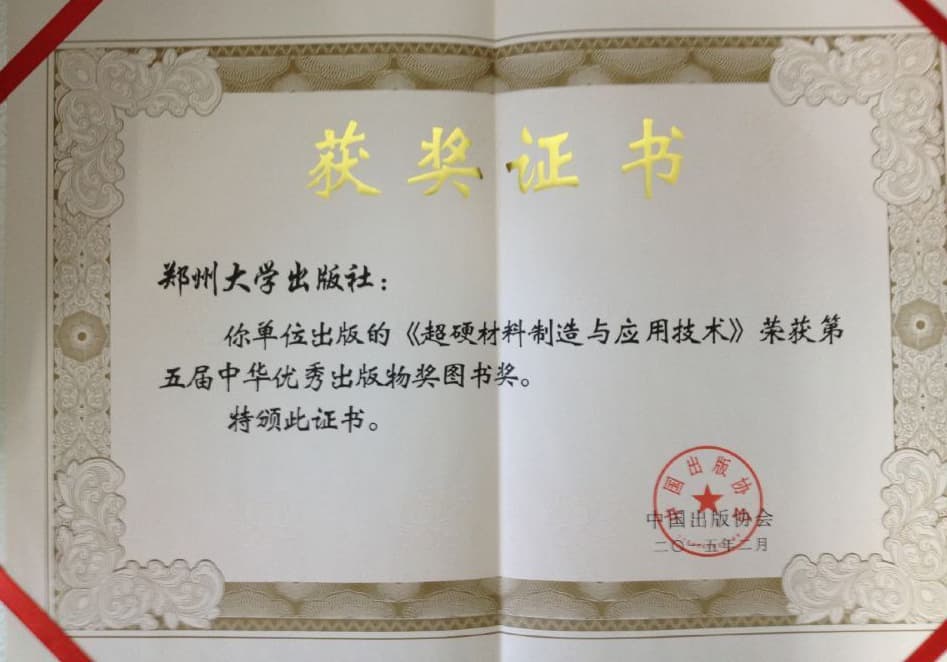 获奖证书
郑州大学出版社：
你单位出版的《超硬材料制造与应用技术》荣获第
五届中华优秀出版物奖图书奖。
特颁此证书。
中国出版协会
中国出版协会
二〇一五年二月